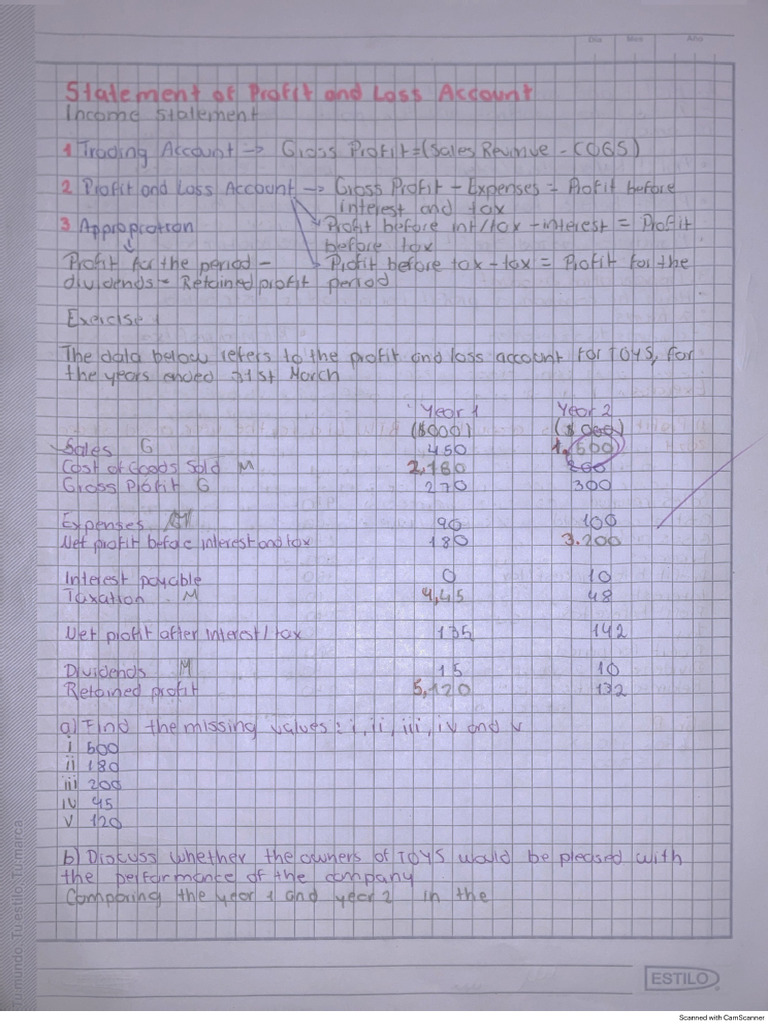 Día Mes Año
Statement of Profit and Loss Account
Income statement
1 Trading Account -> Gross Profit=(Sales Revinue - COGS)
2 Profit and Loss Account -> Gross Profit - Expenses = Profit before
interest and tax
3 Appropiation Profit before int/tax - interest = Profit
before tax
Profit for the period - Profit before tax - tax = Profit for the
dividends = Retained profit period
Exercise 1
The data below refers to the profit and loss account for TOYS, for
the years ended 31st March
Year 1 Year 2
($000) ($000)
Sales G 450 1.500
Cost of Goods Sold M 2,180 200
Gross Profit G 270 300
Expenses M 90 100
Net profit before interest and tax 180 3.200
Interest payable 0 10
Taxation M 4,45 48
Net profit after interest/tax 135 142
Dividends M 15 10
Retained profit 5,120 132
a) Find the missing values: i, ii, iii, iv and v
i 500
ii 180
iii 200
iv 45
v 120
b) Discuss whether the owners of TOYS would be pleased with
the performance of the company
Comparing the year 1 and year 2 in the
Tu mundo. Tu estilo. Tu marca.
ESTILO
Scanned with CamScanner